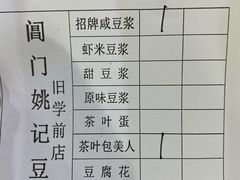 阊门姚记豆
旧学前店
招牌咸豆浆
虾米豆浆
甜豆浆
原味豆浆
茶叶蛋
茶叶包美人
豆腐花